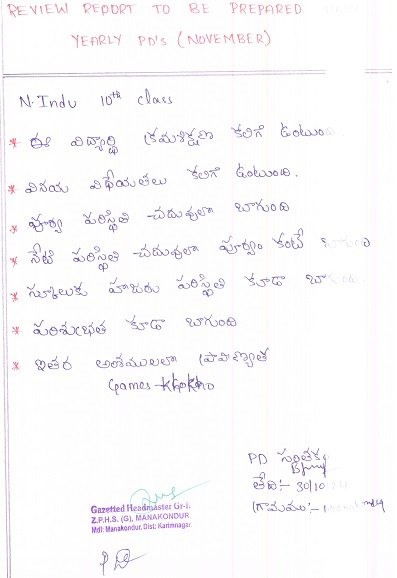 REVIEW REPORT TO BE PREPARED
YEARLY PD's (NOVEMBER)
N. Indu 10th class
* ఈ విద్యార్థి క్రమశిక్షణ కలిగి ఉంటుంది.
* వినయ విధేయతలు కలిగి ఉంటుంది.
* పూర్వ పరిస్థితి చదువులో బాగుంది
* నేటి పరిస్థితి చదువులో పూర్వం కంటే బాగుంది
* స్కూలుకు హాజరు పరిస్థితి కూడా
* పరిశుభ్రత కూడా బాగుంది
* ఇతర అంశములలో ప్రావిణ్యత
Games - Khokho
PD
తేది:- 30/10
గ్రామము:-
Gazetted Headmaster Gr-I.
Z.P.H.S. (G), MANAKONDUR,
Mdl: Manakondur, Dist: Karimnagar.